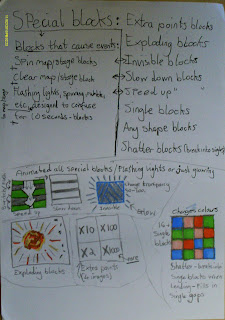 Special blocks:
Extra points blocks
Exploding blocks
Blocks that cause events:
Invisible blocks
Spin map/stage blocks
Slow down blocks
Clear map/stage block
"Speed up"
Flashing lights, spinning
etc, designed to confuse
Single blocks
for 10 seconds - blocks
Any shape blocks
Shatter blocks (break into single)
Animated all special blocks / Flashing lights or just glowing
Speed up
Slow down
Invisible
Change transparency
Glow
Changes colours
16 x
Single
blocks
X10
X100
X2
X1000
Exploding blocks
Extra points
(4 images)
Shatter - breaks into
Single blocks when
Landing - Fills in
Single gaps